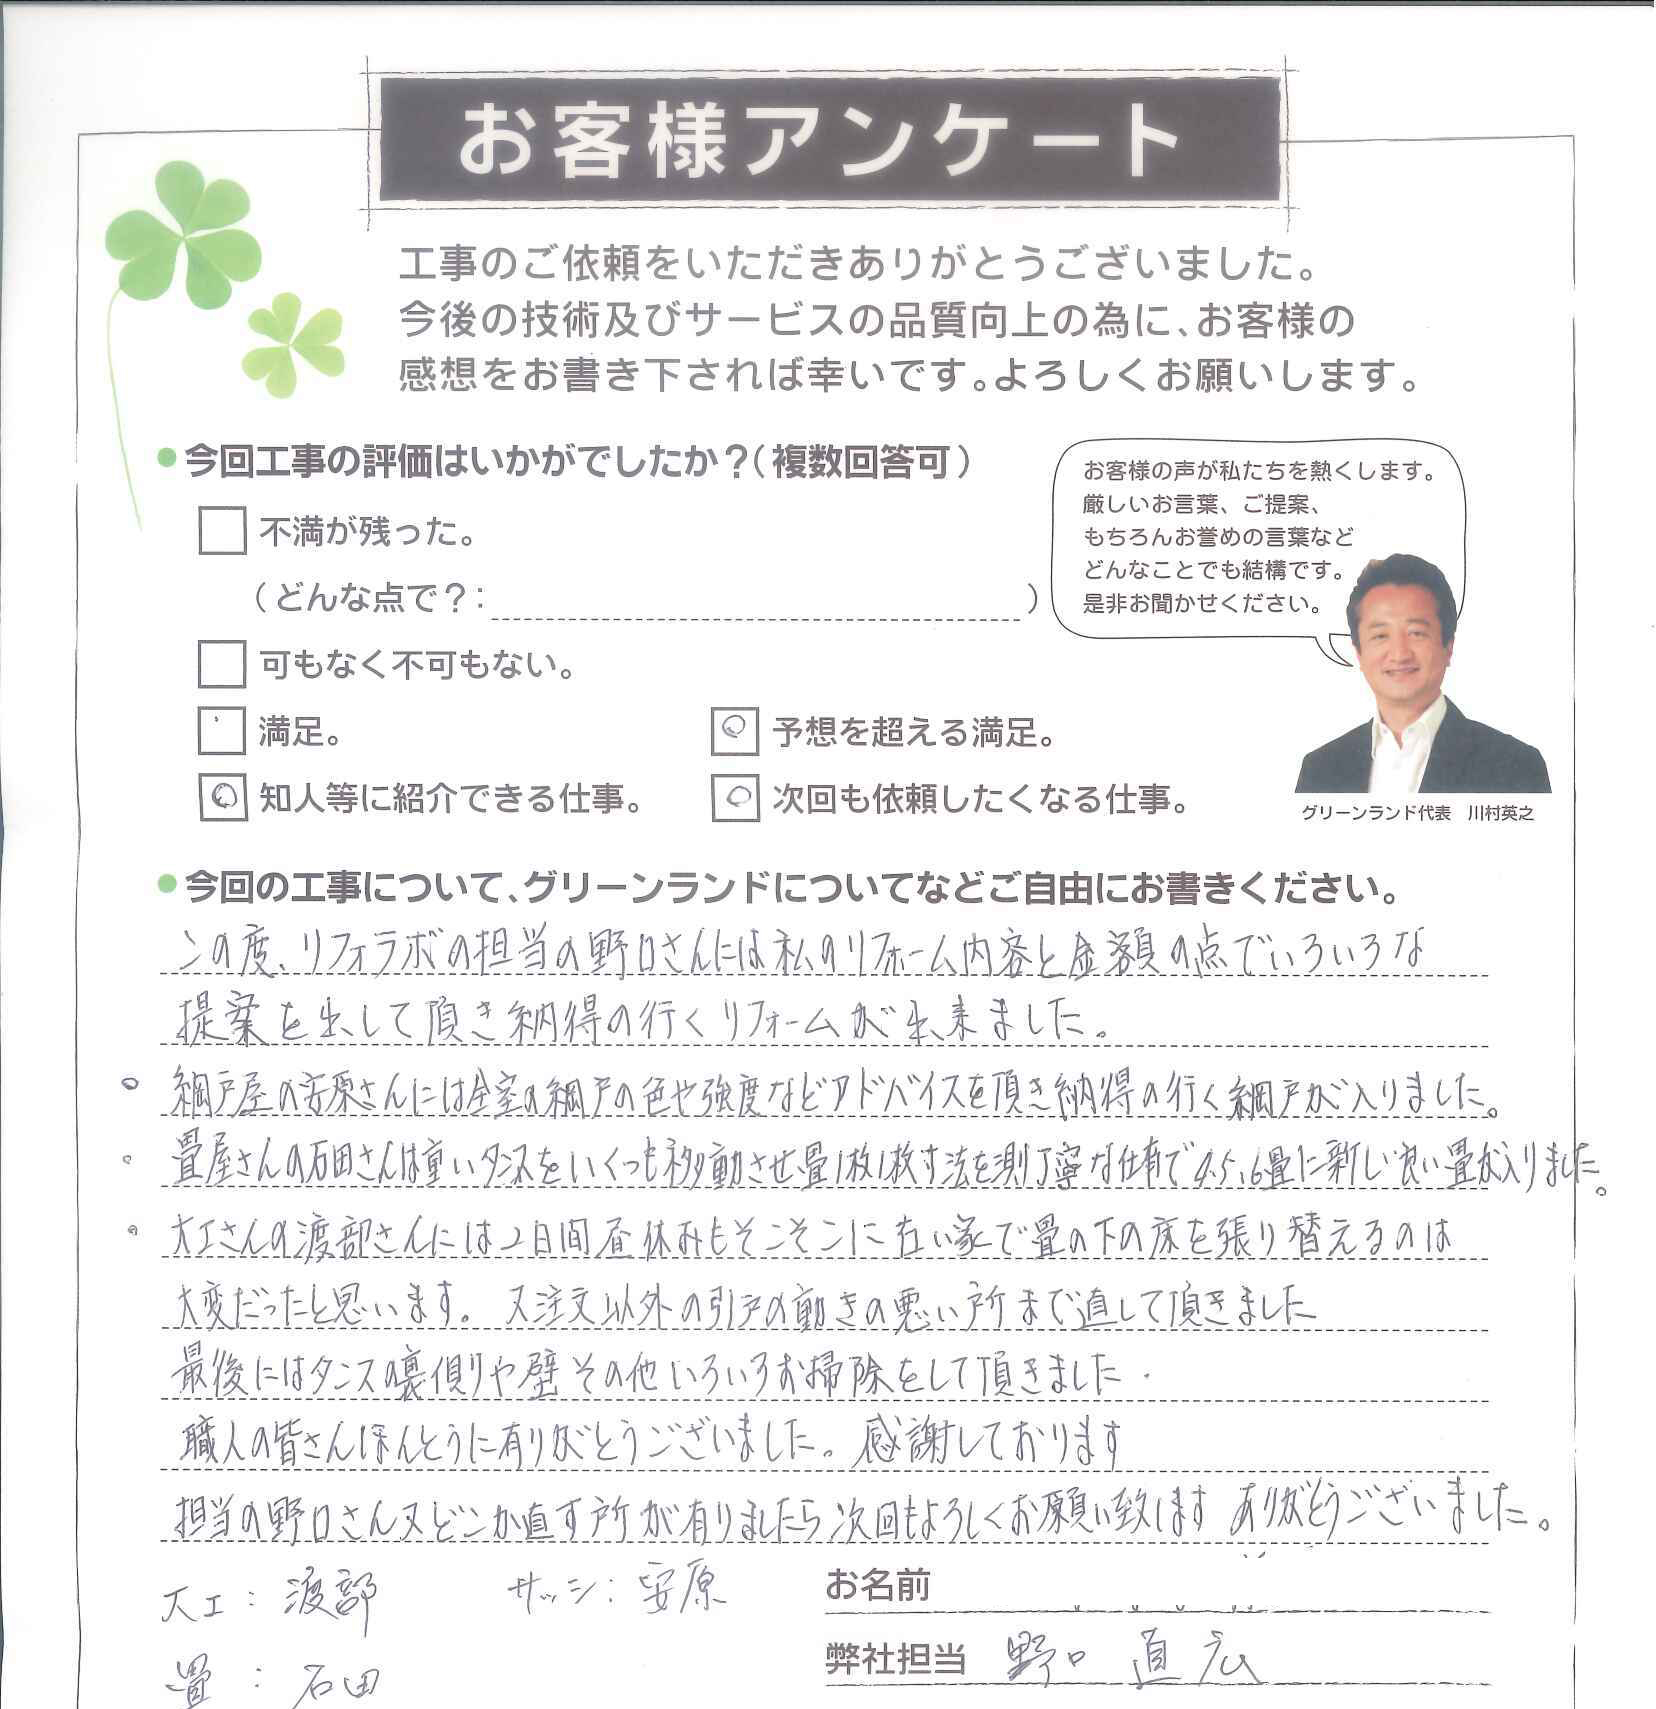 お客様アンケート
工事のご依頼をいただきありがとうございました。
今後の技術及びサービスの品質向上の為に、お客様の
感想をお書き下されば幸いです。よろしくお願いします。
今回工事の評価はいかがでしたか？（複数回答可）
不満が残った。
（どんな点で？：　）
可もなく不可もない。
満足。
予想を超える満足。
知人等に紹介できる仕事。
次回も依頼したくなる仕事。
お客様の声が私たちを熱くします。
厳しいお言葉、ご提案、
もちろんお誉めの言葉など
どんなことでも結構です。
是非お聞かせください。
グリーンランド代表　川村英之
今回の工事について、グリーンランドについてなどご自由にお書きください。
この度、リフォラボの担当の野口さんには私のリフォーム内容と金額の点でいろいろな
提案を出して頂き納得の行くリフォームが出来ました。
。網戸屋の安原さんには全室の網戸の色や強度などアドバイスを頂き納得の行く網戸が入りました。
。畳屋さんの石田さんは重いタンスをいくつも移動させ畳1枚1枚寸法を測り丁寧な仕事で4.5、6畳に新しい良い畳が入りました。
。大工さんの渡部さんには2日間昼休みもそこそこに在い家で畳の下の床を張り替えるのは
大変だったと思います。又注文以外の引戸の動きの悪い所まで直して頂きました
最後にはタンスの裏側りや壁その他いろいろお掃除をして頂きました.
職人の皆さんほんとうに有りがとうございました。感謝しております
担当の野口さん又どこか直す所が有りましたら次回もよろしくお願い致します ありがとうございました。
大工：渡部　サッシ：安原
畳：石田
お名前
弊社担当　野口 直広